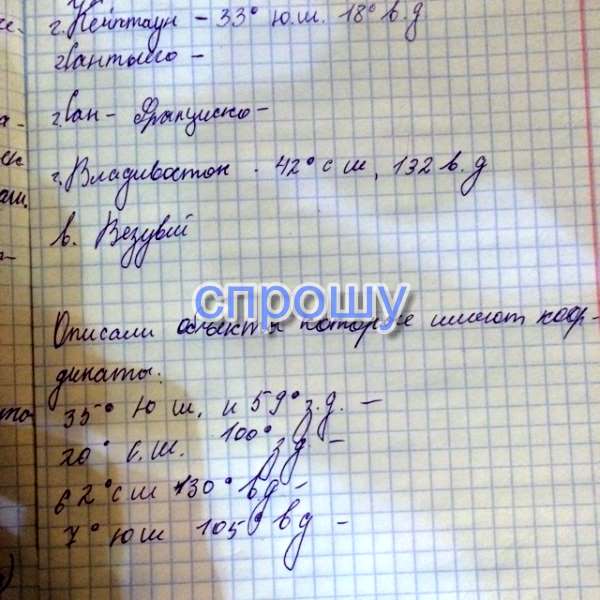 г. Кейптаун - 33° ю.ш. 18° в.д
г. Сантьяго -
г. Сан - Франциско -
г. Владивосток . 42° с ш, 132 в.д
в. Везувий
спрошу
Описали объекты которые имеют коор-
динаты:
35° ю ш. и 59° з.д. -
20° с.ш. 100° з.д. -
62° с ш 130° вд -
7° ю ш 105° вд -